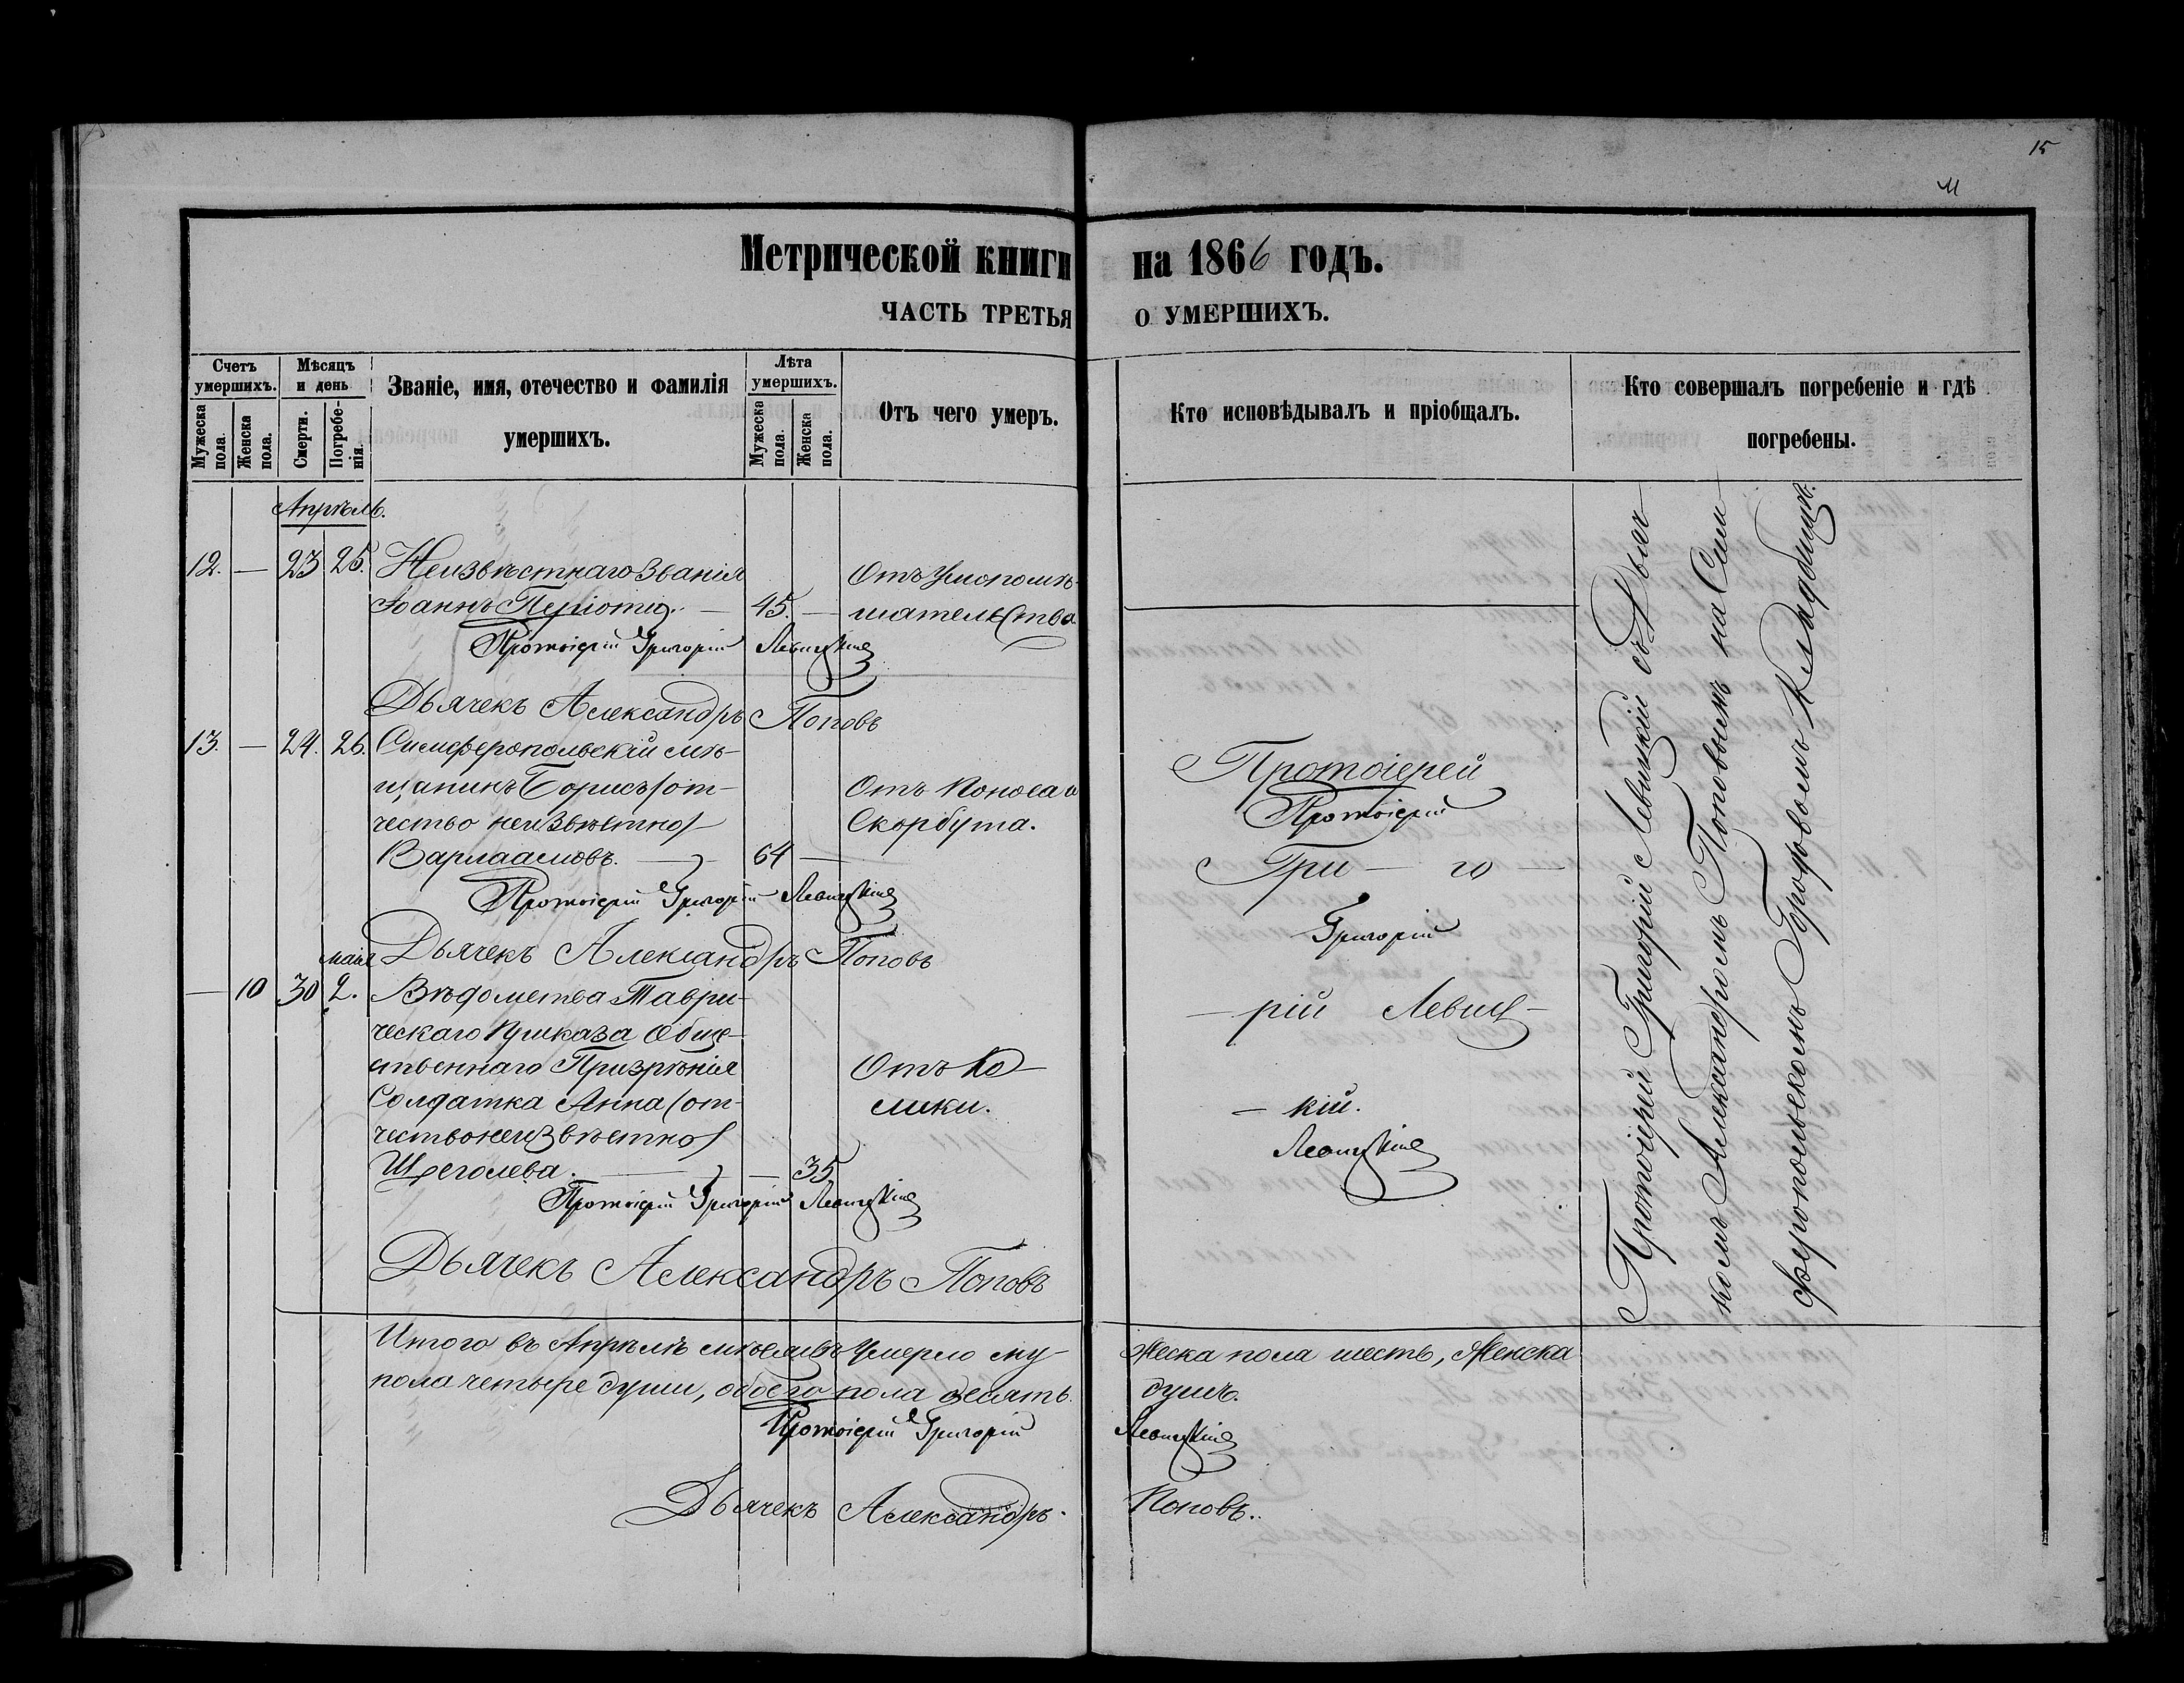 15
М
Метрической книги на 1866 годъ.
ЧАСТЬ ТРЕТЬЯ О УМЕРШИХЪ.
Счетъ умершихъ.
Мужеска пола.
Женска пола.
Мѣсяцъ и день
Смерти.
Погребенія.
Званіе, имя, отечество и фамилія умершихъ.
Лѣта умершихъ.
Мужеска пола.
Женска пола.
Отъ чего умеръ.
Кто исповѣдывалъ и пріобщалъ.
Кто совершалъ погребеніе и гдѣ погребены.
Апрѣль.
12. — 23 25. Неизвѣстнаго званія Отъ умопомѣ-
Іоаннъ — 45. — шательства
Протоіерей Григорій Левицкій
Дьячекъ Александръ Поповъ
13. — 24. 26. Симферопольскій мѣ-
щанинъ Борисъ (от- Отъ поноса и
чество неизвѣстно) Скорбута.
Варлаамовъ. — 64 —
Протоіерей Григорій Левицкій
Дьячекъ Александръ Поповъ
мая
— 10 30 2. Вѣдомства Таври-
ческаго Приказа Обще-
ственнаго Призрѣнія Отъ Ко-
Солдатка Анна (от- лики.
чество неизвѣстно)
Щеголева. — — 35
Протоіерей Григорій Левицкій
Дьячекъ Александръ Поповъ
Протоіерей
Протоіерей
Гри — го —
Григорій
— рій Левиц —
— кій.
Левицкій
Протоіерей Григорій Левицкій съ Дьяч
комъ Александромъ Поповымъ на Сим
феропольскомъ Городовомъ Кладбищѣ.
Итого въ Апрѣлѣ мѣсяцѣ умерло му- жеска пола шесть, Женска
пола четыре души, обоего пола десять душъ.
Протоіерей Григорій Левицкій
Дьячекъ Александръ Поповъ.